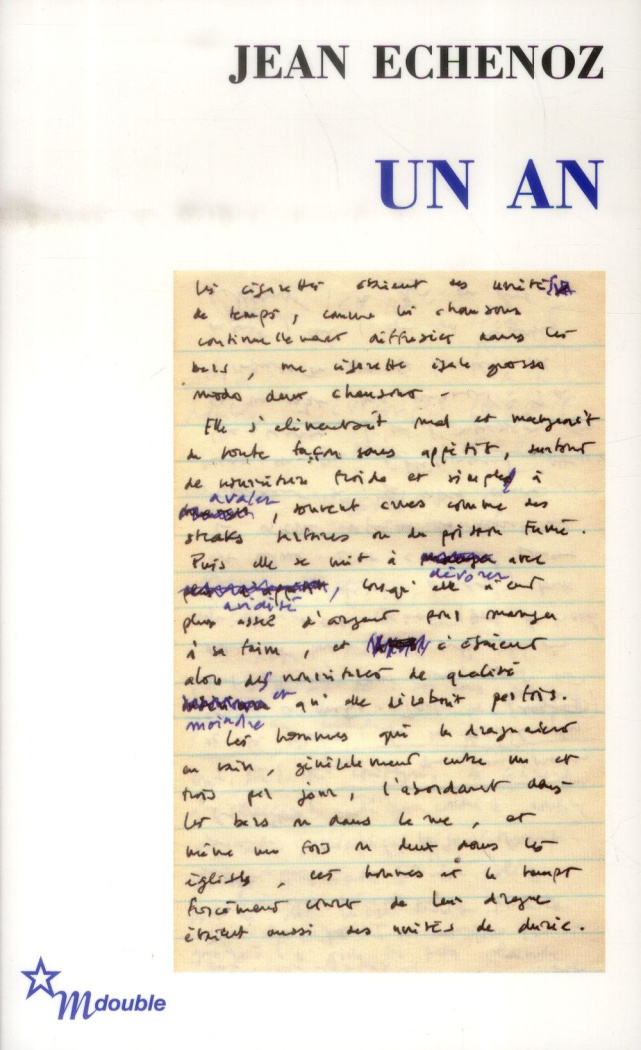 JEAN ECHENOZ
UN AN
Les cigarettes étaient des unités
de temps, comme les chansons
continuellement diffusées dans les
bars, une cigarette égale grosso
modo deux chansons.
Elle s'alimentait mal et mangeait
de toute façon sans appétit, surtout
de nourriture froide et simple à
avaler
, souvent crues comme des
steaks tartares ou du poisson fumé.
Puis elle se mit à avec
dévorer
, lorsqu'elle n'eut
avidité
plus assez d'argent pour manger
à sa faim, et c'étaient
alors des nourritures de qualité
et qu'elle dérobait parfois.
moindre
Les hommes qui la draguaient
en vain, généralement entre un et
trois par jour, l'abordant dans
les bars ou dans la rue, et
même une fois ou deux dans les
églises, ces hommes et le temps
forcément court de leur drague
étaient aussi des unités de durée.
M double